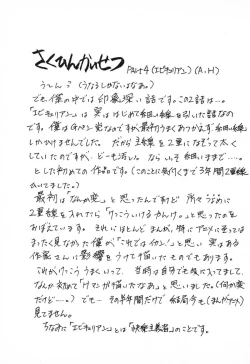 さくひんかいせつ PART4 (エピキュリアン) (A.H)
う〜ん? (うなるしかないなぁ。)
でも僕の中では印象深い話です。この2話は…。
「エピキュリアン」は実ははじめて細い線を引いた話なの
です。僕はGペン党なのですが、最初うまくあつかえず細い線
しかかけませんでした。 だから主線を2重になぞって太く
していたのですが、どーも汚い。 ならいっそ細いままで…。
とした初めての作品です。(このことに気付くまで3年間2重線
かいてました。)
最初は「なんか変」と思ったんですけど 所々うるおいに
2重線を入れたら「けっこういけるやんけ」と思ったのを
おぼえています。 それにほとんどまんが、特にアニメに至っては
まったく見なかった僕が「これではイカン!」と思い 実はある
作家さんに影響をうけて描いたものでもあります。
これがけっこううまくいって、 当時は自分でも気に入ってまして、
なんか突如「ナマンガ描いたなぁ」と思いました。(何か変
だけど…) でも… その半年間だけで結局今も(まんがやアニメ)
見てません。
ちなみに「エピキュリアン」とは「快楽主義者」のことです。